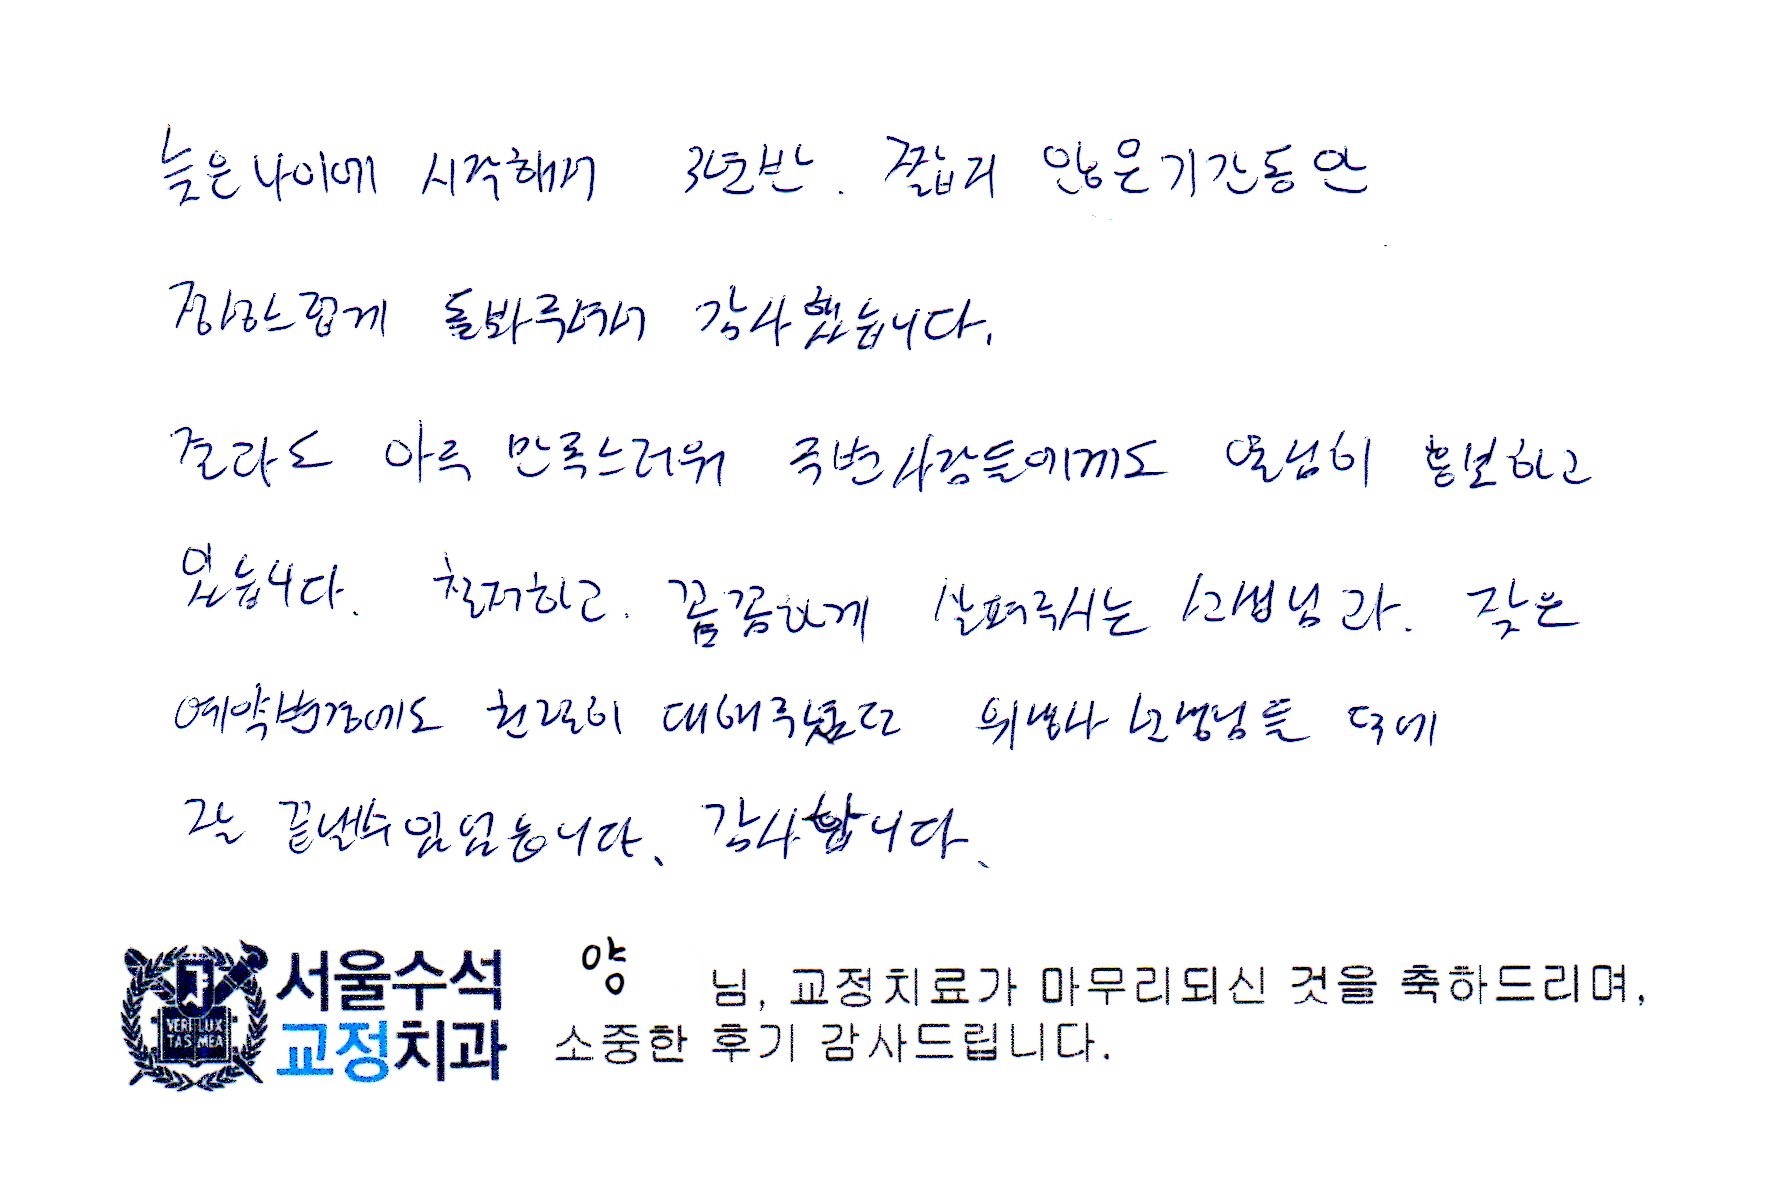 늦은 나이에 시작해서 3년반. 짧지 않은 기간동안
정성스럽게 돌봐주셔서 감사했습니다.
결과도 아주 만족스러워 주변사람들에게도 열심히 홍보하고
있습니다. 철저하고. 꼼꼼하게 살펴주시는 선생님과. 잦은
예약변경에도 친절히 대해주셨던 위생사 선생님들 덕에
잘 끝낼수 있었습니다. 감사합니다.
서울수석
교정치과
VERI LUX
TAS MEA
양 님, 교정치료가 마무리되신 것을 축하드리며,
소중한 후기 감사드립니다.